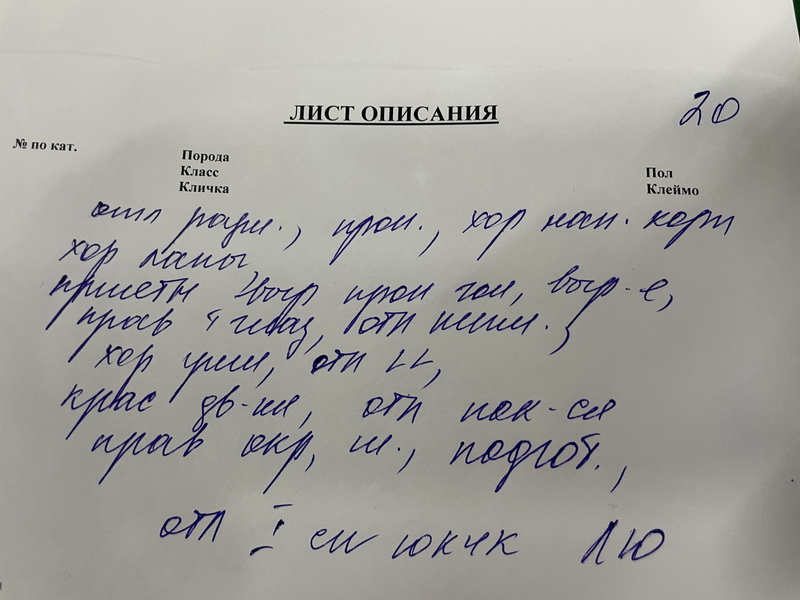 ЛИСТ ОПИСАНИЯ
20
№ по кат.
Порода
Класс
Кличка
Пол
Клеймо
отл разм., проп., хор нап. корп
хор лапы
приетн выр проп гол, выр-е,
прав ч глаз, отл пигм.,
хор уши, отл LL,
крас дв-ия, отл пок-ся
прав окр, ш., подгот.,
отл I см ЮКЧК ЛЮ